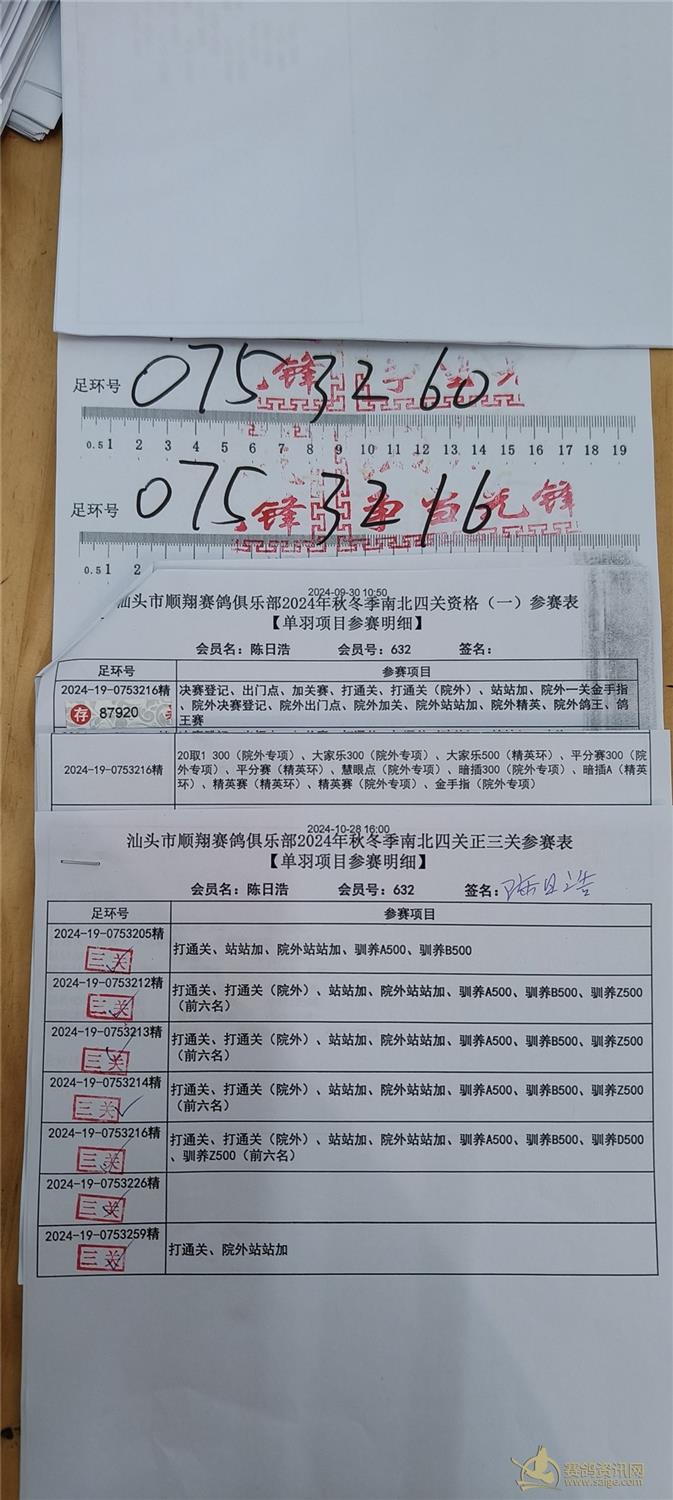 足环号 0753260
0.51 2 3 4 5 6 7 8 9 10 11 12 13 14 15 16 17 18 19
足环号 0753216
锋 当当先锋
0.51 2
2024-09-30 10:50
汕头市顺翔赛鸽俱乐部2024年秋冬季南北四关资格（一）参赛表
【单羽项目参赛明细】
会员名：陈日浩 会员号：632 签名：
足环号 参赛项目
2024-19-0753216精 决赛登记、出门点、加关赛、打通关、打通关（院外）、站站加、院外一关金手指
存 87920 、院外决赛登记、院外出门点、院外加关、院外站站加、院外精英、院外鸽王、鸽
王赛
20取1 300（院外专项）、大家乐300（院外专项）、大家乐500（精英环）、平分赛300（院
2024-19-0753216精 外专项）、平分赛（精英环）、慧眼点（院外专项）、暗插300（院外专项）、暗插A（精英
环）、精英赛（精英环）、精英赛（院外专项）、金手指（院外专项）
2024-10-28 16:00
汕头市顺翔赛鸽俱乐部2024年秋冬季南北四关正三关参赛表
【单羽项目参赛明细】
会员名：陈日浩 会员号：632 签名：陈日浩
足环号 参赛项目
2024-19-0753205精
三关 打通关、站站加、院外站站加、驯养A500、驯养B500
2024-19-0753212精 打通关、打通关（院外）、站站加、院外站站加、驯养A500、驯养B500、驯养Z500
三关 （前六名）
2024-19-0753213精 打通关、打通关（院外）、站站加、院外站站加、驯养A500、驯养B500、驯养Z500
三关 （前六名）
2024-19-0753214精 打通关、打通关（院外）、站站加、院外站站加、驯养A500、驯养B500、驯养Z500
三关 （前六名）
2024-19-0753216精 打通关、打通关（院外）、站站加、院外站站加、驯养A500、驯养B500、驯养D500
三关 、驯养Z500（前六名）
2024-19-0753226精
三关
2024-19-0753259精
三关 打通关、院外站站加
赛鸽资讯网
www.saige.com